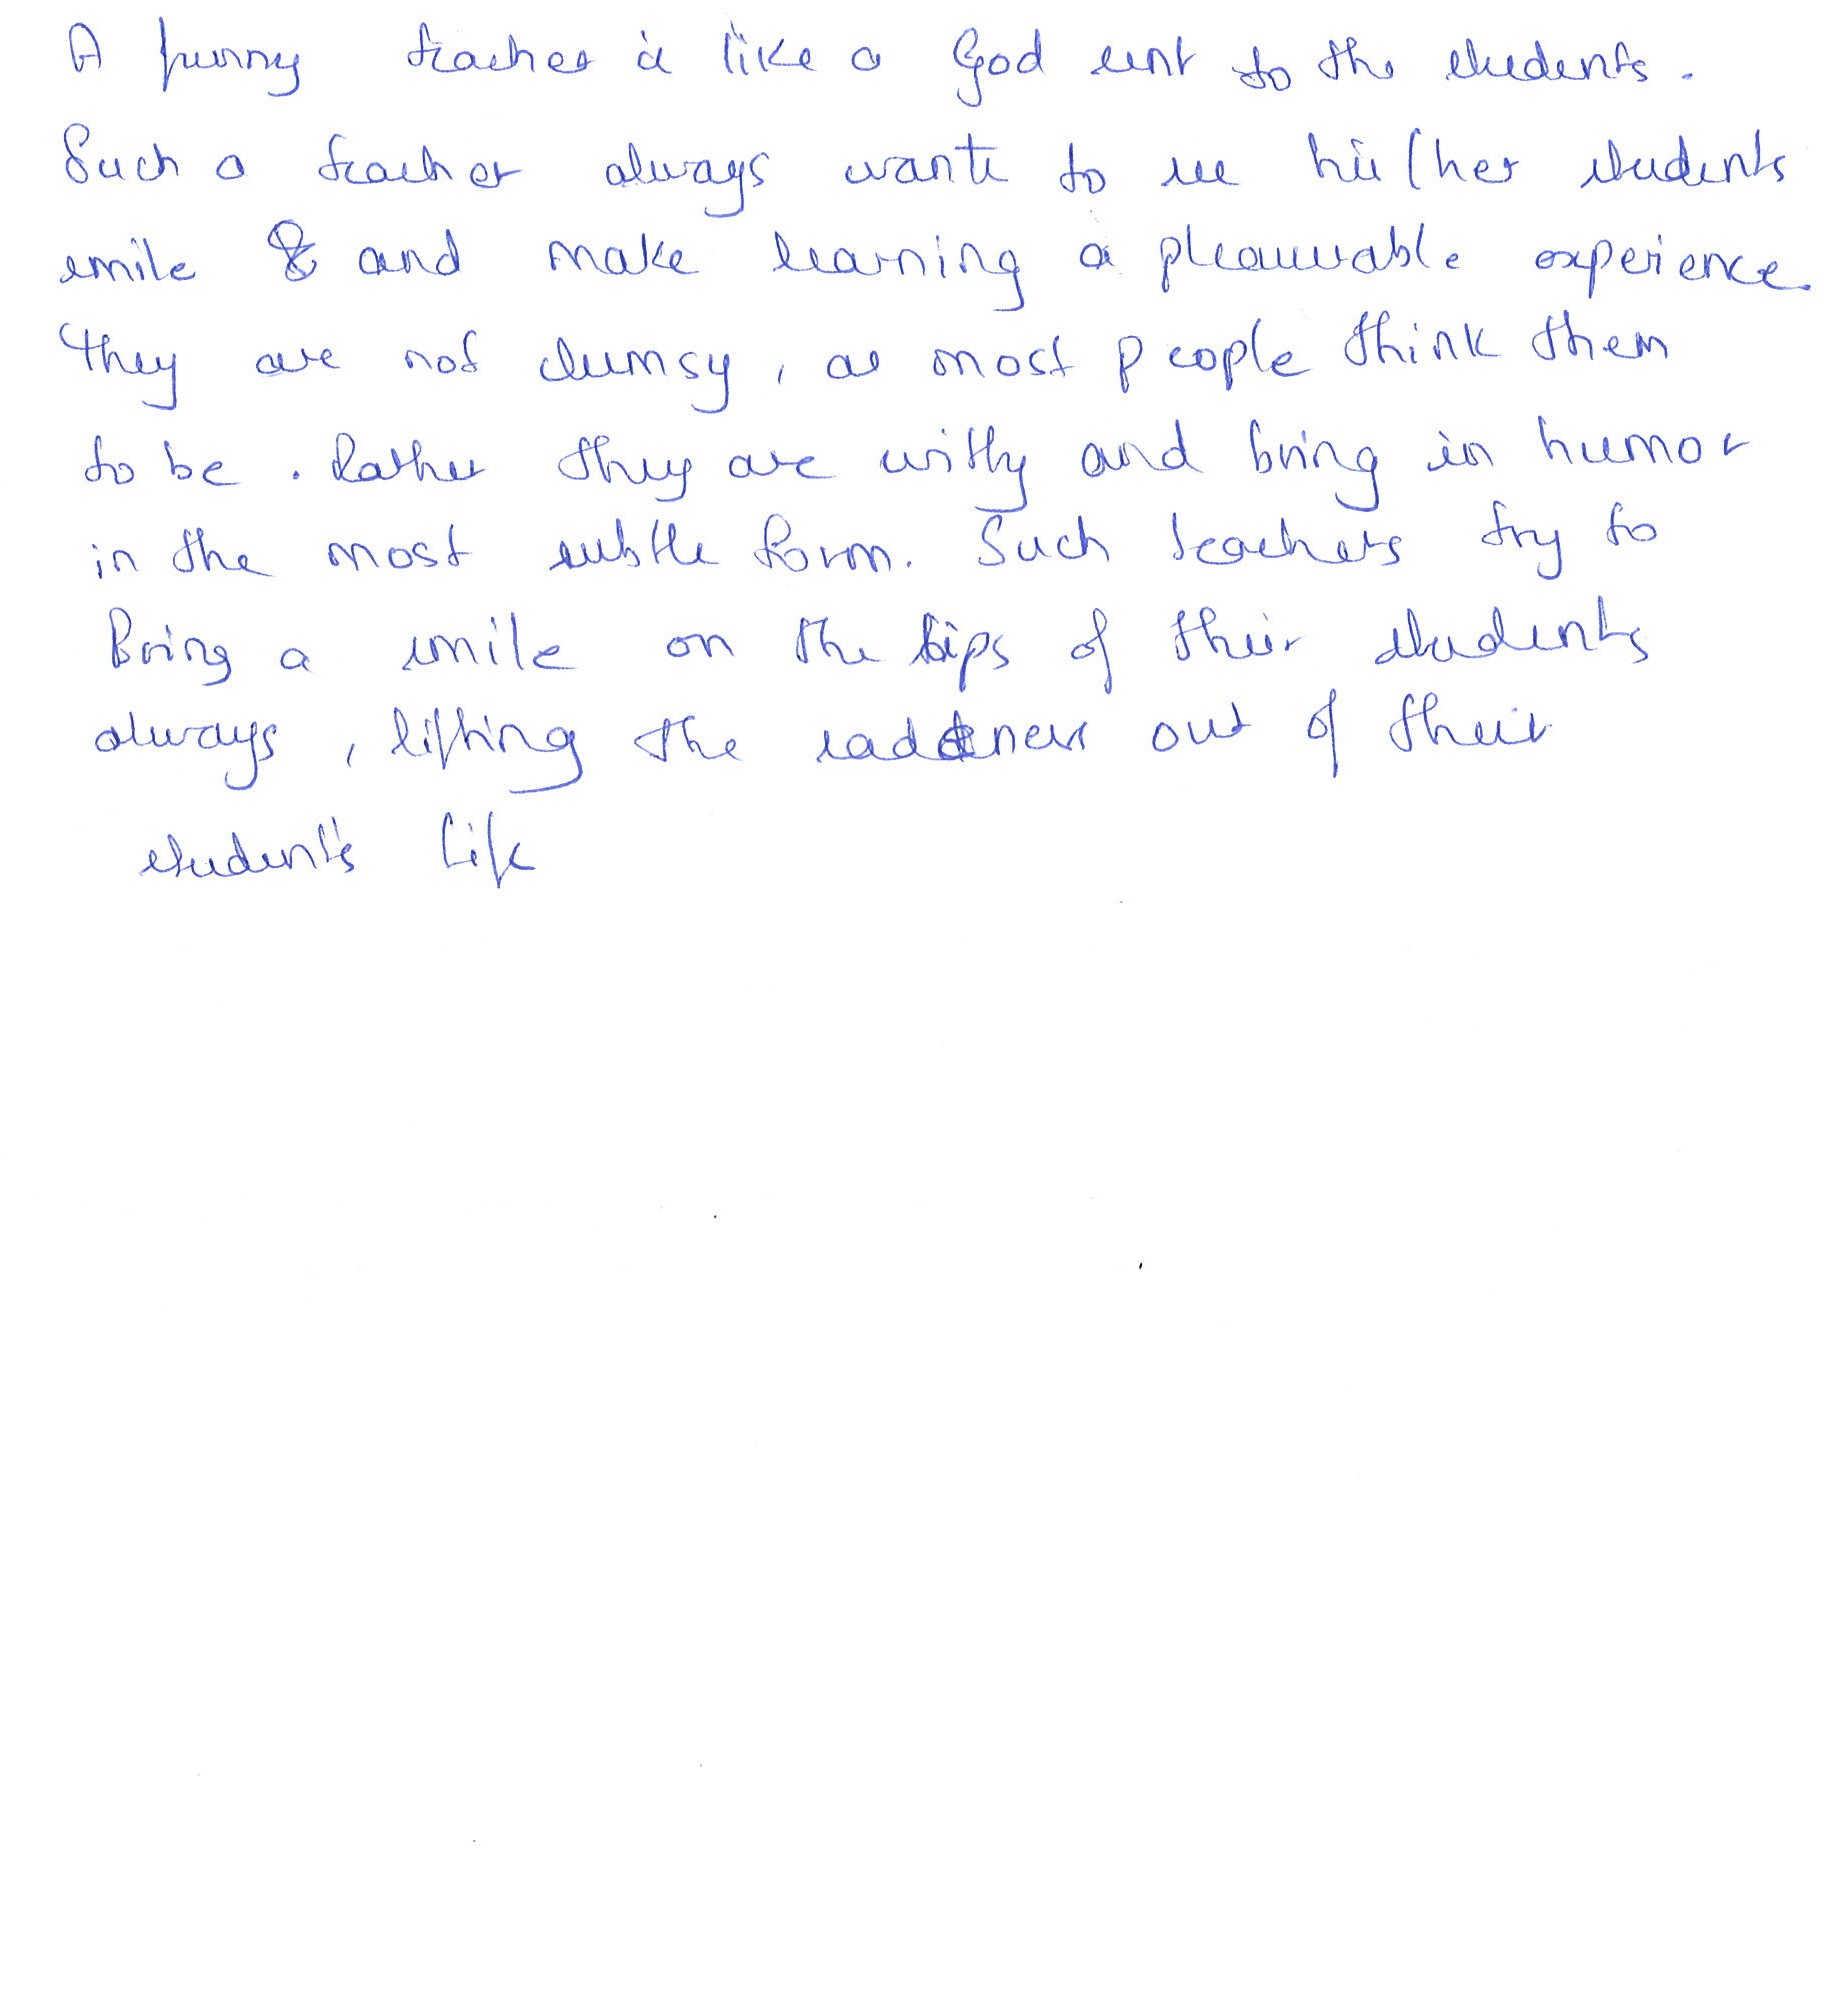 A funny teacher is like a God sent to the students.
Such a teacher always wants to see his/her students
smile & and make learning a pleasurable experience.
They are not clumsy, as most people think them
to be. Rather they are witty and bring in humor
in the most subtle form. Such teachers try to
Bring a smile on the lips of their students
always, lifting the saddness out of their
student's life